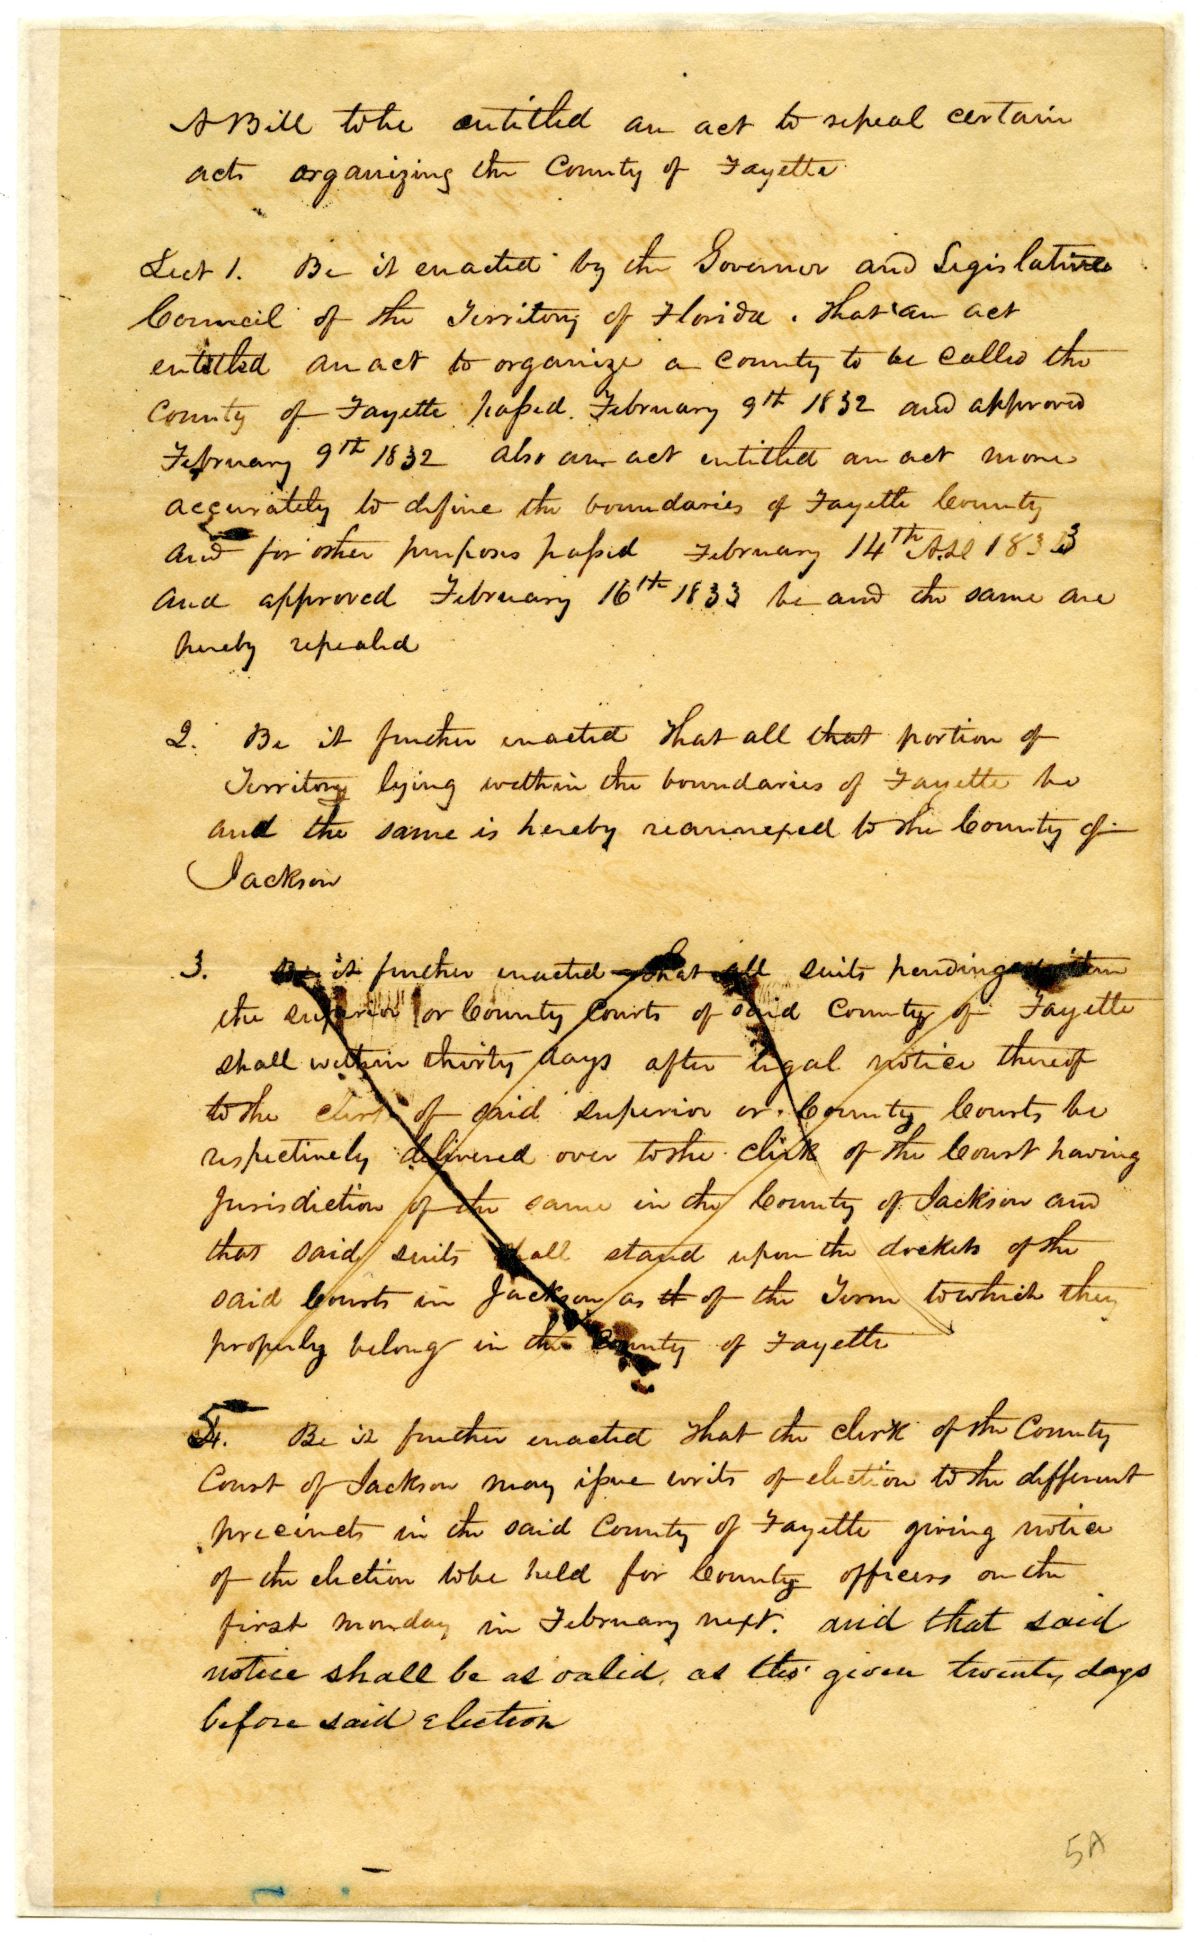 A Bill to be entitled an act to repeal certain
acts organizing the County of Fayette
Sect 1. Be it enacted by the Governor and Legislative
Council of the Territory of Florida. That an act
entitled an act to organize a county to be called the
County of Fayette passed February 9th 1832 and approved
February 9th 1832 also an act entitled an act more
accurately to define the boundaries of Fayette County
and for other purposes passed February 14th A.D 1833
and approved February 16th 1833 be and the same are
hereby repealed
2. Be it further enacted That all that portion of
Territory lying within the boundaries of Fayette be
and the same is hereby reannexed to the County of
Jackson
3. Be it further enacted that all suits pending in
the superior or County Courts of said County of Fayette
shall within thirty days after legal notice thereof
to the clerk of said superior or County Courts be
respectively delivered over to the clerk of the Court having
jurisdiction of the same in the County of Jackson and
that said suits shall stand upon the dockets of the
said Courts in Jackson as of the Term to which they
properly belong in the County of Fayette
5. Be it further enacted That the clerk of the County
Court of Jackson may issue writs of election to the different
precincts in the said County of Fayette giving notice
of the election to be held for County officers on the
first monday in February next. and that said
notice shall be as valid, as tho' given twenty days
before said election
5A